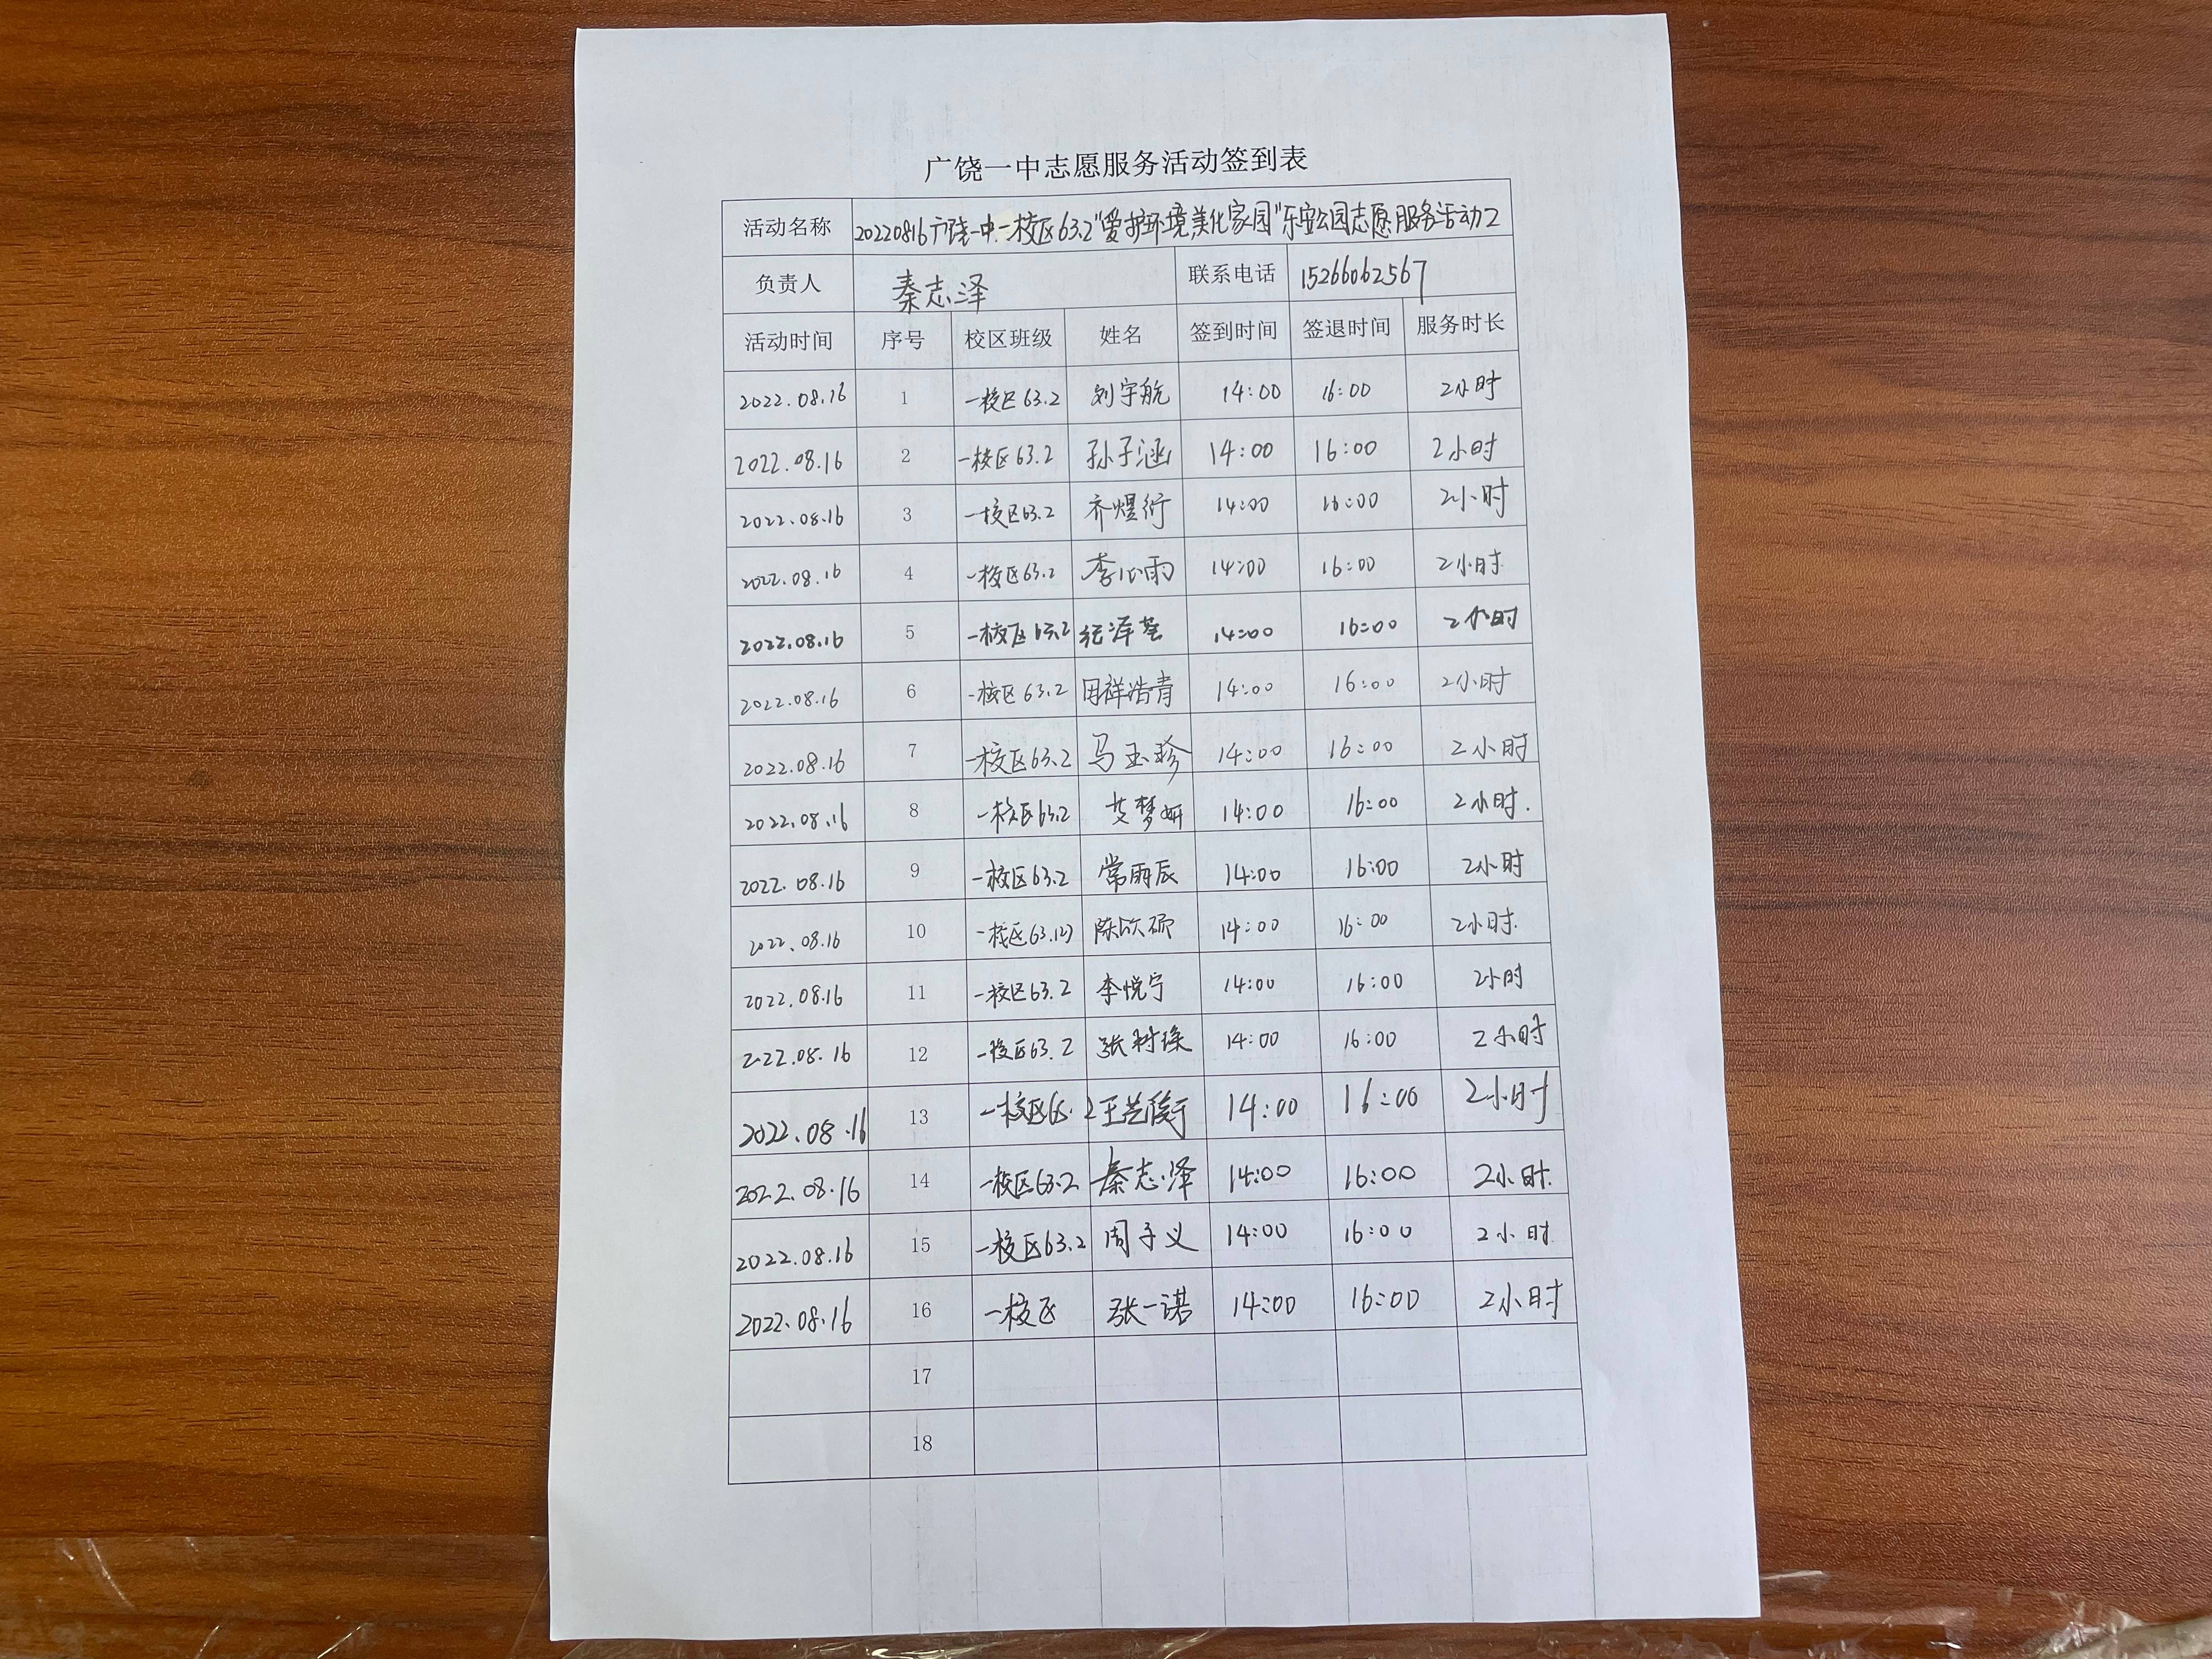 广饶一中志愿服务活动签到表
活动名称 20220816广饶一中一校区63.2"爱护环境美化家园"乐安公园志愿服务活动2
负责人 秦志泽 联系电话 15266062567
活动时间 序号 校区班级 姓名 签到时间 签退时间 服务时长
2022.08.16 1 一校区63.2 刘宇航 14:00 16:00 2小时
2022.08.16 2 一校区63.2 孙子涵 14:00 16:00 2小时
2022.08.16 3 一校区63.2 齐煜衍 14:00 16:00 2小时
2022.08.16 4 一校区63.2 李心雨 14:00 16:00 2小时
2022.08.16 5 一校区63.2 14:00 16:00 2小时
2022.08.16 6 一校区63.2 田祥浩青 14:00 16:00 2小时
2022.08.16 7 一校区63.2 马玉珍 14:00 16:00 2小时
2022.08.16 8 一校区63.2 艾梦妍 14:00 16:00 2小时.
2022.08.16 9 一校区63.2 常雨辰 14:00 16:00 2小时
2022.08.16 10 一校区63.(2) 陈欣硕 14:00 16:00 2小时.
2022.08.16 11 一校区63.2 李悦宁 14:00 16:00 2小时
2022.08.16 12 一校区63.2 14:00 16:00 2小时
2022.08.16 13 14:00 16:00 2小时
2022.08.16 14 一校区63.2 秦志泽 14:00 16:00 2小时.
2022.08.16 15 一校区63.2 周子义 14:00 16:00 2小时
2022.08.16 16 一校区 张一诺 14:00 16:00 2小时
17
18